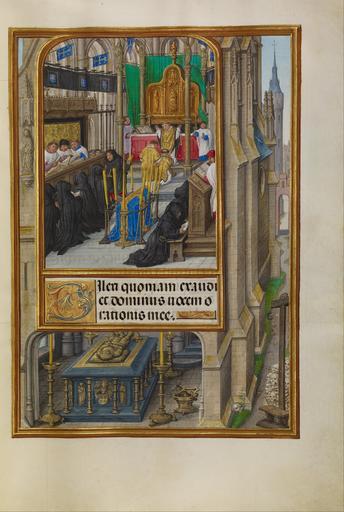 Dilexi quoniam exaudi
et dominus uocem o
rationis mee.